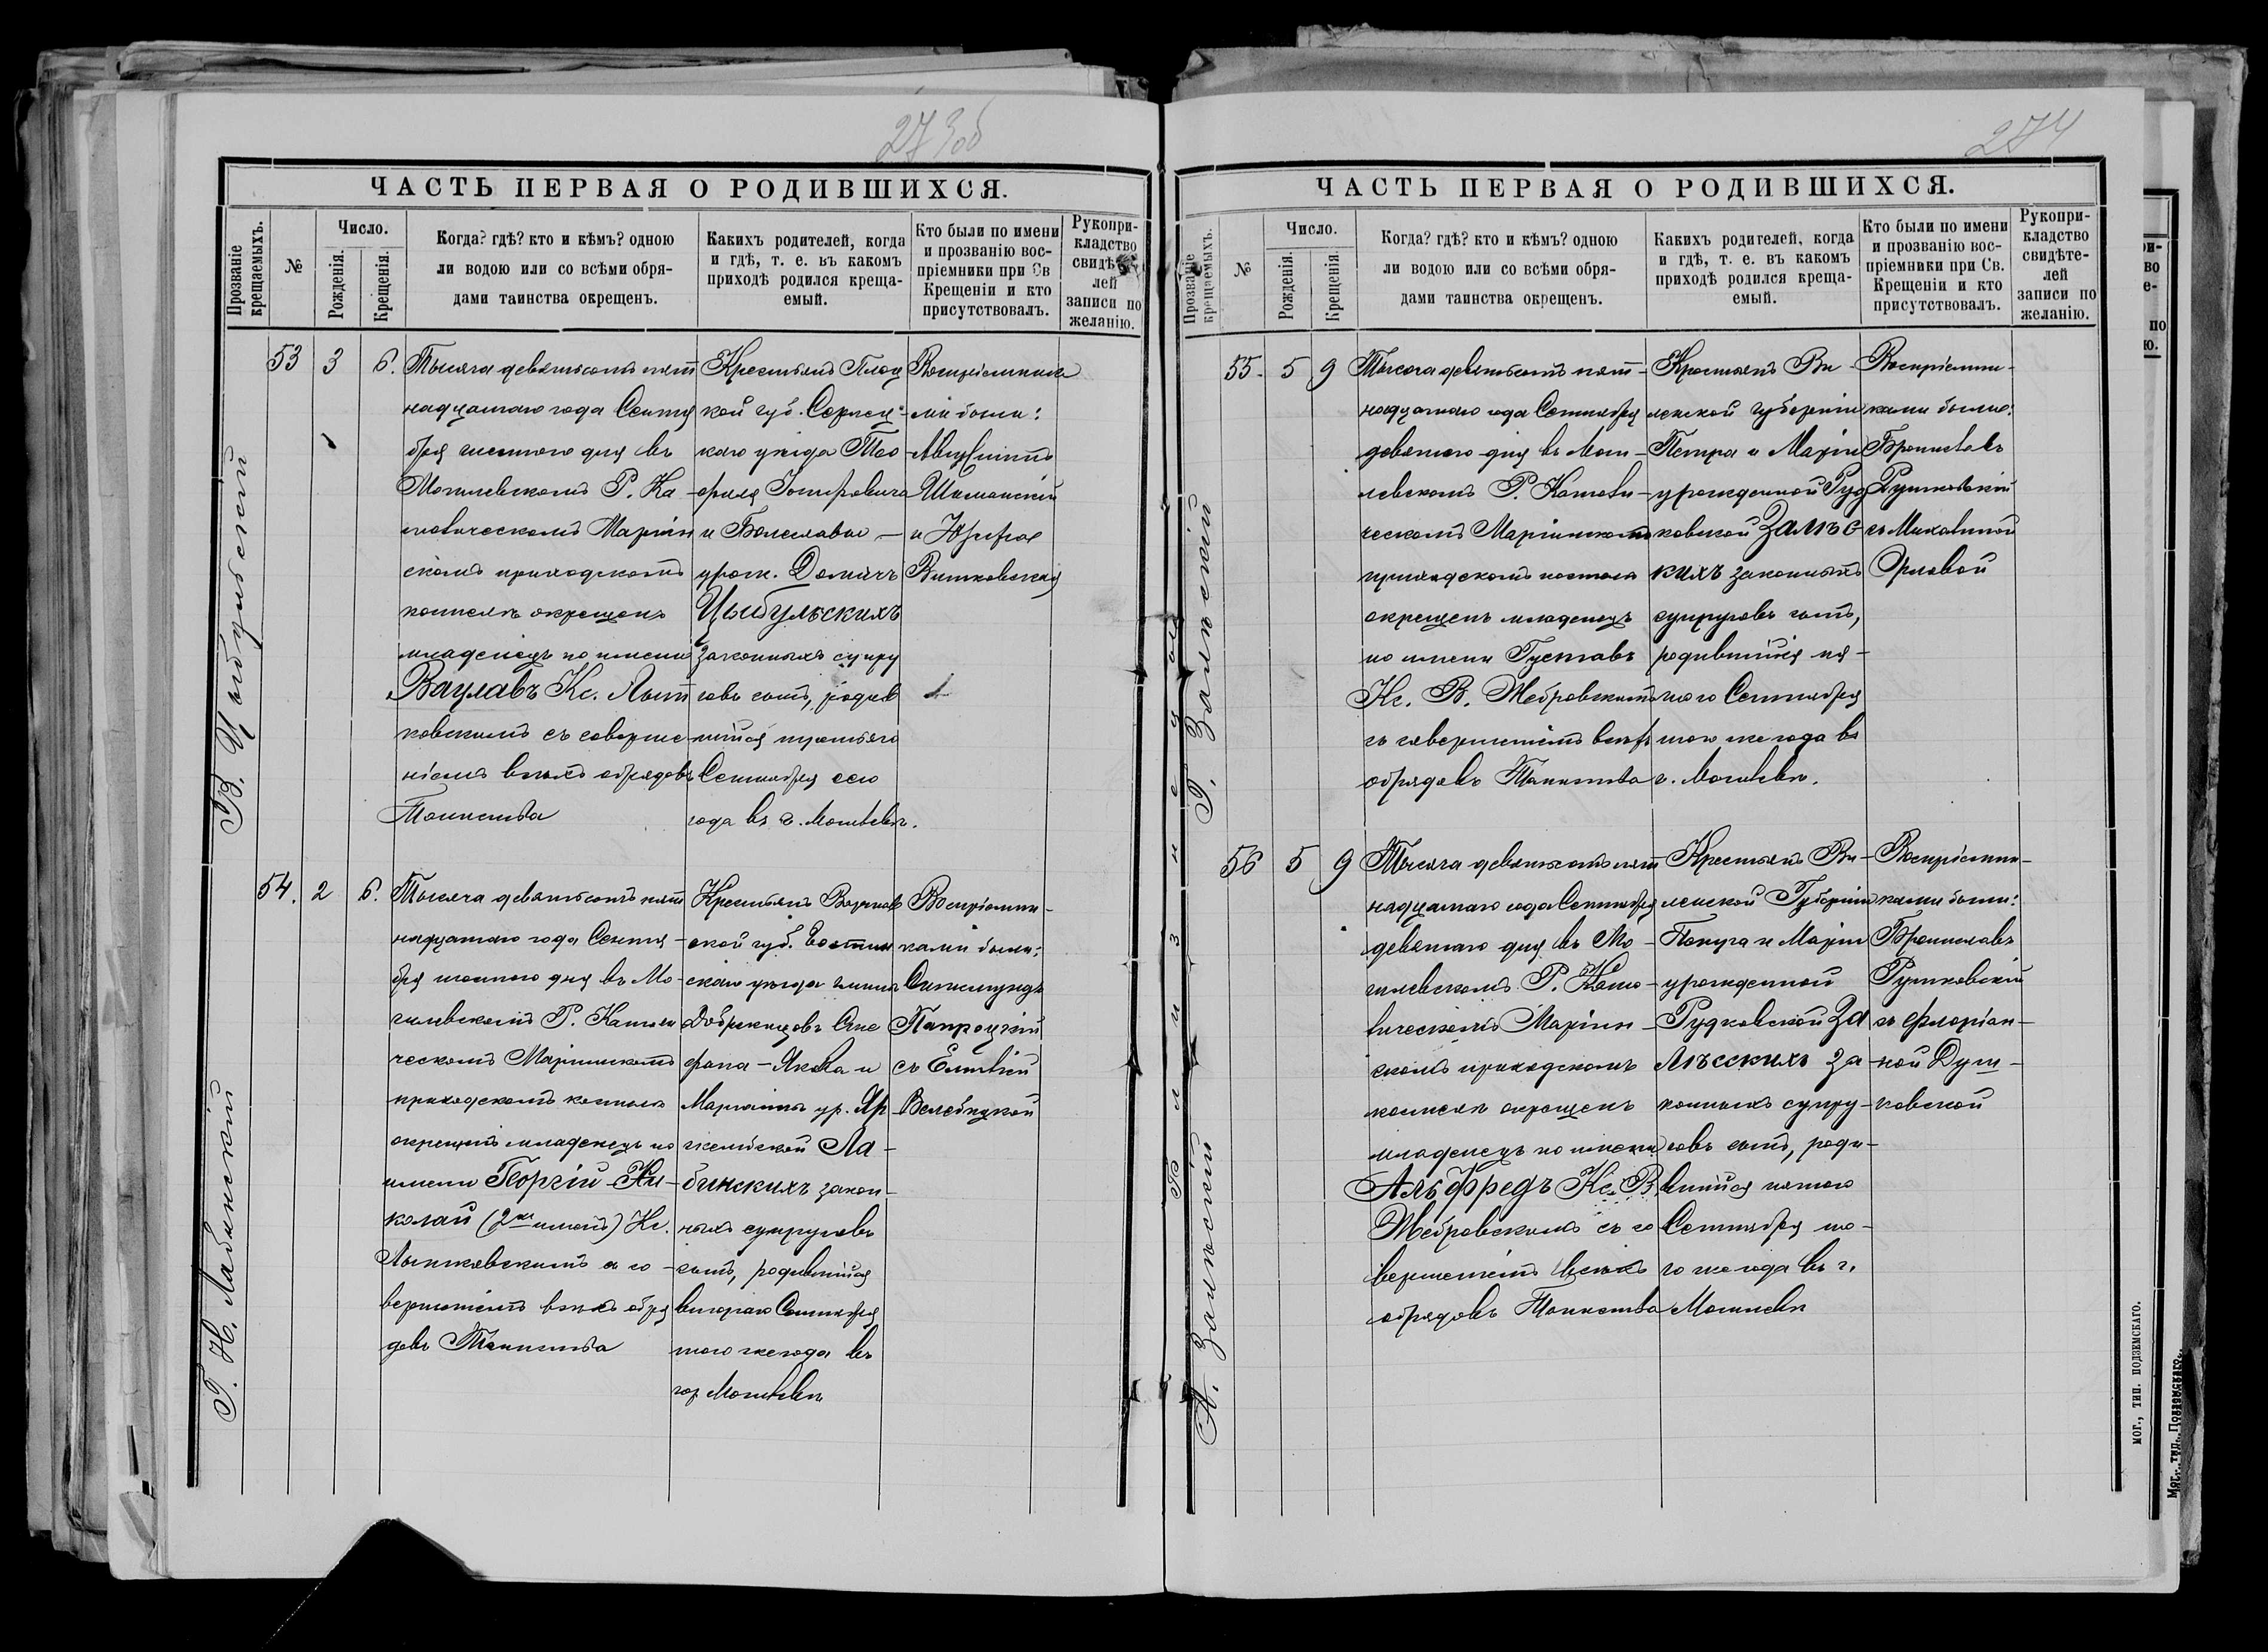 273об
ЧАСТЬ ПЕРВАЯ О РОДИВШИХСЯ.
Прозваніе крещаемыхъ.
№
Число.
Рожденія.
Крещенія.
Когда? гдѣ? кто и кѣмъ? одною
ли водою или со всѣми обря-
дами таинства окрещенъ.
Какихъ родителей, когда
и гдѣ, т. е. въ какомъ
приходѣ родился креща-
емый.
Кто были по имени
и прозванію вос-
пріемники при Св
Крещеніи и кто
присутствовалъ.
Рукопри-
кладство
свидѣте-
лей
записи по
желанію.
В. Цыбульскій
53
3
6.
Тысяча девятьсотъ пят
надцатаго года Сентя
бря шестого дня въ
Могилевскомъ Р. Ка-
толическомъ Маріин
скомъ приходскомъ
костелѣ окрещенъ
младенецъ по имени
Вацлавъ Кс. Лыт
ковскимъ съ соверше
ніемъ всѣхъ обрядовъ
Таинства
Крестьянъ Плоц
кой губ. Серпец-
каго уѣзда Тео
филя Іосифовича
и Болеславы —
урож.
Цыбульскихъ
законныхъ супру
говъ сынъ, родив
шійся третьяго
Сентября сего
года въ г. Могилевѣ.
Воспріемника
ми были:
Шиманскій
и Юзефа
Витковская
Г. Н. Лабинскій
54.
2
6.
Тысяча девятьсотъ пят
надцатаго года Сентя-
бря шестого дня въ Мо-
гилевскомъ Р. Католи
ческомъ Маріинскомъ
приходскомъ костелѣ
окрещенъ младенецъ по
имени Георгій-Ни-
колай (2хъ именъ) Кс.
съ со-
вершеніемъ всѣхъ обря
довъ Таинства
Крестьянъ Варшав
ской губ. Гостин
скаго уѣзда гмины
Сте
фана-Якова и
Маріанны ур.
Ла-
бинскихъ закон-
ныхъ супруговъ
сынъ, родившійся
второго Сентября
того же года въ
гор Могилевѣ
Воспріемни-
ками были:
Сигизмундъ
Папроцкій
съ
274
ЧАСТЬ ПЕРВАЯ О РОДИВШИХСЯ.
Прозваніе крещаемыхъ.
№
Число.
Рожденія.
Крещенія.
Когда? гдѣ? кто и кѣмъ? одною
ли водою или со всѣми обря-
дами таинства окрещенъ.
Какихъ родителей, когда
и гдѣ, т. е. въ какомъ
приходѣ родился креща-
емый.
Кто были по имени
и прозванію вос-
пріемники при Св.
Крещеніи и кто
присутствовалъ.
Рукопри-
кладство
свидѣте-
лей
записи по
желанію.
Близнецы
Г. Залѣскій
55.
5
9
Тысяча девятьсотъ пят-
надцатаго года Сентября
девятого дня въ Моги-
левскомъ Р. Католи-
ческомъ Маріинскомъ
приходскомъ костелѣ
окрещенъ младенецъ
по имени Густавъ
Кс. В. Жебровскимъ
съ совершеніемъ всѣхъ
обрядовъ Таинства
Крестьянъ Ви-
ленской губерніи
Петра и Маріи
урожденной Руд
ковской Залѣс-
кихъ законныхъ
супруговъ сынъ,
родившійся пя-
таго Сентября
того же года въ
г. Могилевѣ.
Воспріемни-
ками были:
Брониславъ
Рутковскій
съ Михалиной
Орловой
А. Залѣскій
56
5
9
Тысяча девятьсотъ пят
надцатаго года Сентября
девятаго дня въ Мо-
гилевскомъ Р. Като-
лическомъ Маріин-
скомъ приходскомъ
костелѣ окрещенъ
младенецъ по имени
Альфредъ Кс. В.
Жебровскимъ съ со
вершеніемъ всѣхъ
обрядовъ Таинства
Крестьянъ Ви-
ленской Губерніи
и Маріи
урожденной
Рудковской За
лѣсскихъ за-
конныхъ супру-
говъ сынъ, роди-
вшійся пятого
Сентября то-
го же года въ г.
Могилевѣ
Воспріемни-
ками были:
Брониславъ
Рутковскій
съ Флоріан-
ной Дут-
ковской
МОГ., ТИП. ПОДЗЕМСКАГО.
Мог., тип. Подземскаго.